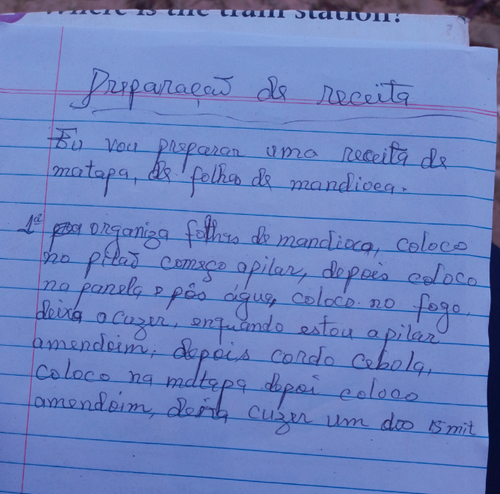 Where is the train station?
Preparação de receita
Eu vou preparar uma receita de
matapa, de folhas de mandioca.
1º organiza folhas de mandioca, coloco
no pilaõ começo apilar, depois coloco
na panela e pôs água, coloco no fogo.
deixa acuzer, enquando estou apilar
amendoim, depois cordo cebola,
coloco na matapa depoi coloco
amendoim, deixa cuzer um doo 15 mit